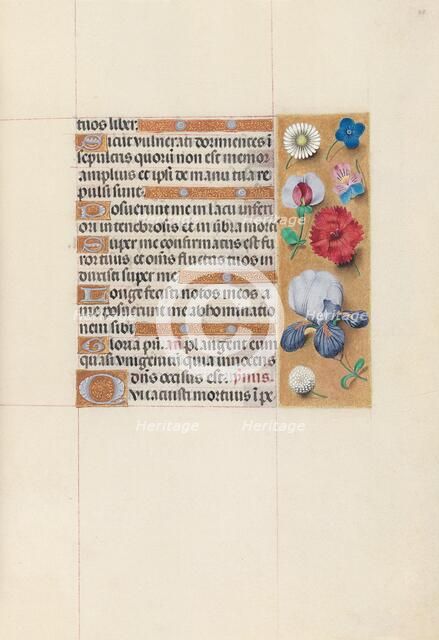 tuos liber.
Sicut vulnerati dormientes ī
sepulcris quorū non est memor
amplius et ipsi de manu tua re
pulsi sunt.
Posuerunt me ī lacu inferi
ori in tenebrosis et in ūbra morti
Super me confirmatus est fu
ror tuus et oīs fluctus tuos in
duxisti super me
Longe fecisti notos meos a
me posuerunt me abhominatio
nem sibi
Gloria pri. an. plangent eum
quasi unigenitū quia innocens
dn̄s occisus est. psalmus.
tuī mortuus ī pe
Heritage
Heritage
Heritage
Heritage
Heritage